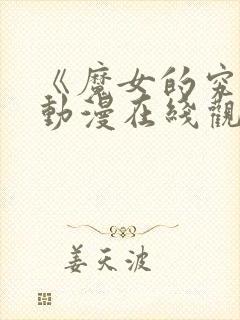 《魔女的究
動漫在綫觀
姜天波